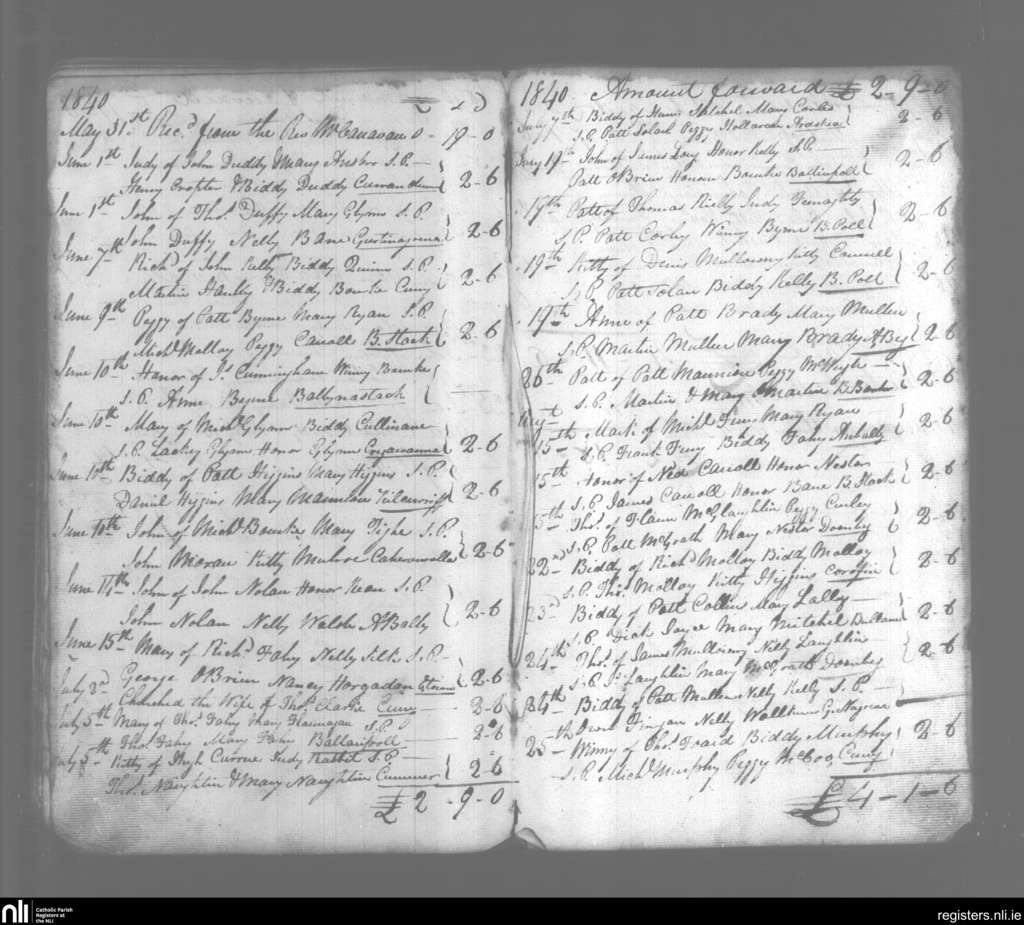 1840
£ s D
May 31st Recd from the Rev Mr Canavan 0-19-0
June 1st Judy of John Duddy Mary S.P.
Henry & Biddy Duddy 2-6
June 1st John of Thos Duffy Mary Glynn S.P.
John Duffy Nelly Bane 2-6
June 7th Richd of John Kelly Biddy Quinn S.P.
Martin Hanly & Biddy Bourke Cumy 2-6
June 9th Peggy of Patt Byrne Mary Ryan S.P.
Michl Molloy Peggy Carroll B. Stack 2-6
June 10th Honor of Js Cunningham Winny Bourke
S.P. Anne Byrne Ballynastack
June 10th Mary of Michl Glynn Biddy Cullinane
S.P. Lackey Glynn Honor Glynn 2-6
June 10th Biddy of Patt Higgins Mary Higgins S.P.
Daniel Higgins Mary Mannion 2-6
June 10th John of Michl Bourke Mary Tighe S.P.
John Moran Kitty 2-6
June 14th John of John Nolan Honor Kean S.P.
John Nolan Nelly Walsh A Bally 2-6
June 15th Mary of Richd Fahy Nelly Silk S.P.
George O'Brien Nancy Horgadan 2-6
July 3d Churched the Wife of Thos Clarke Cumy 2-6
July 5th Mary of Thos Fahy Mary Flannagan S.P. 2-6
Thos Fahy Mary Fahy
July 5th Kitty of Hugh Currue Judy Rabbit S.P.
Thos Naughtin & Mary Naughtin Cummer 2-6
£2-9-0
1840 Amount forward £2-9-0
July 7th Biddy of Henry Mitchel Mary
S.P. Patt Solan Peggy Holloran 2-6
July 17th John of James Honor Kelly S.P.
Patt O'Brien Honour Bourke 2-6
19th Patt of Thomas Kielly Judy
S.P. Patt Corley Winny Byrne B. Poll 2-6
19th Kitty of Denis Mullowny Kitty
S.P. Patt Solan Biddy Kelly B. Poll 2-6
19th Anne of Patt Brady Mary Mullen
S.P. Martin Mullen Mary Brady A Bey 2-6
26th Patt of Patt Mannion Peggy
S.P. Martin & Mary Martin 2-6
Augt
15th Mark of Michl Mary Ryan
S.P. Frank Biddy Fahy 2-6
15th Honor of Ned Carroll Honor Nestor
S.P. James Carroll Honor Bane B. Stack 2-6
15th Thos of McGlaughlin Peggy Curley
S.P. Patt McGrath Mary Nestor Doonby 2-6
22nd Biddy of Richd Molloy Biddy Molloy
S.P. Thos Molloy Kitty Higgins Corofin 2-6
23d Biddy of Patt Collins Mary Lally
S.P. Dick Joyce Mary Mitchel 2-6
24th Thos of James Mullowny Nelly Laughlin
S.P. Laughlin Mary McGrath Doonby 2-6
24th Biddy of Patt Mullen Nelly Kelly S.P.
Owen Finegan Nelly
25th Winny of Thos Fraid Biddy Murphy
S.P. Michl Murphy Peggy Cumy 2-6
£4-1-6
nli
Catholic Parish
Registers at
the NLI
registers.nli.ie